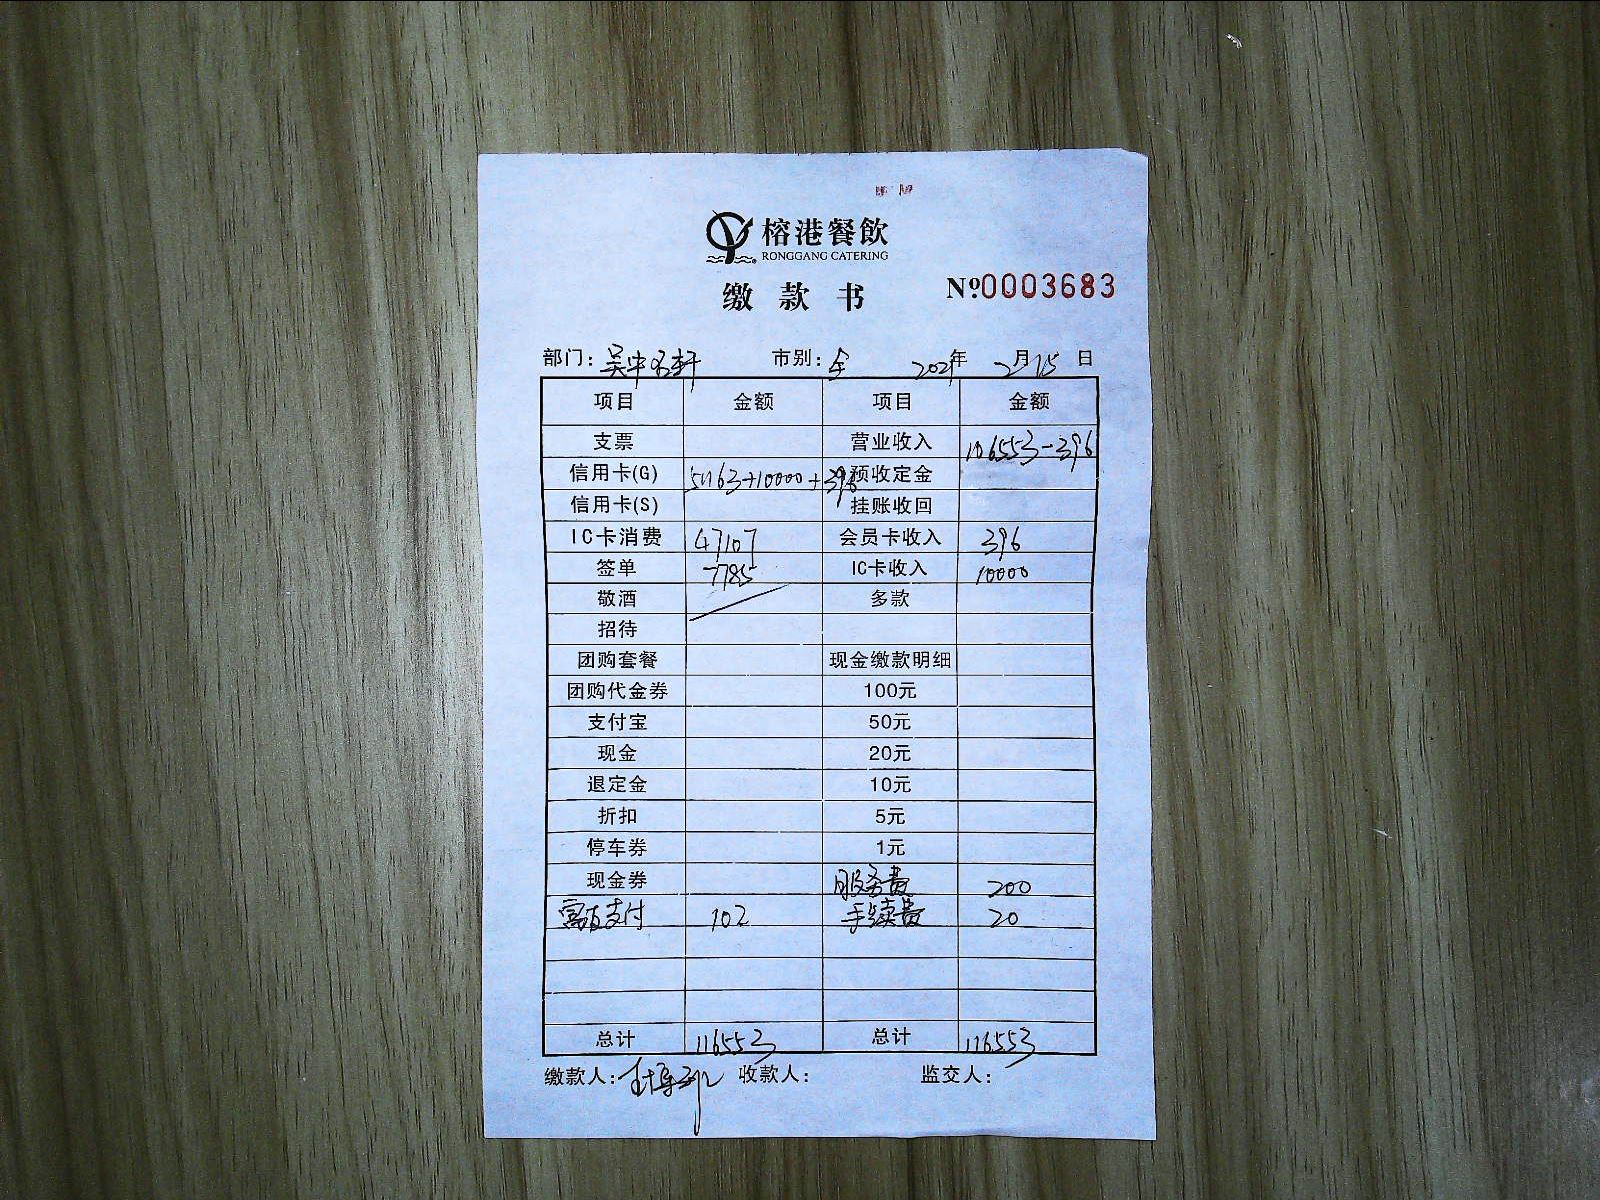 榕港餐飲
RONGGANG CATERING
缴款书 №0003683
部门: 吴中名轩 市别: 全 2021年 2月15日
项目 金额 项目 金额
支票 营业收入 106553-396
信用卡(G) 51163+10000+396 预收定金
信用卡(S) 挂账收回
IC卡消费 47107 会员卡收入 396
签单 7785 IC卡收入 10000
敬酒 多款
招待
团购套餐 现金缴款明细
团购代金券 100元
支付宝 50元
现金 20元
退定金 10元
折扣 5元
停车券 1元
现金券 服务费 200
支付 102 手续费 20
总计 116553 总计 116553
缴款人: 收款人: 监交人: